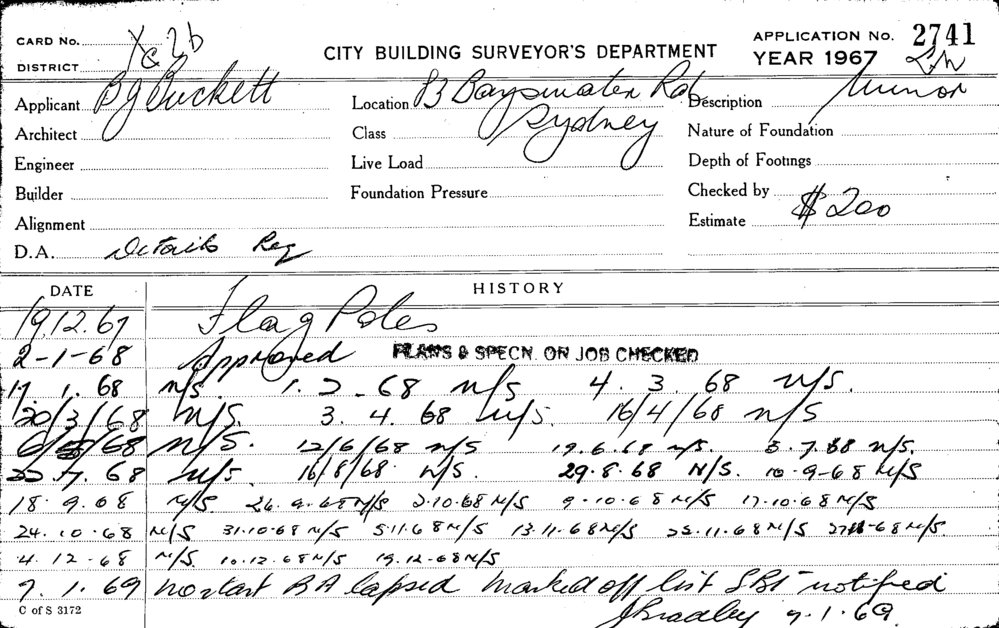 CARD No. Xc 2b
CITY BUILDING SURVEYOR'S DEPARTMENT
APPLICATION No. 2741
DISTRICT
YEAR 1967
Applicant B J Buckett
Location 83 Bayswater Rd
Description Minor
Architect
Class Sydney
Nature of Foundation
Engineer
Live Load
Depth of Footings
Builder
Foundation Pressure
Checked by
Alignment
Estimate $200
D.A. Details Req
DATE HISTORY
19.12.67 Flag Poles
2-1-68 Approved PLANS & SPECN. ON JOB CHECKED
17.1.68 N/S. 1.2.68 N/S 4.3.68 N/S.
20/3/68 N/S. 3.4.68 N/S. 16/4/68 N/S
6/5/68 N/S. 12/6/68 N/S 19.6.68 N/S. 3.7.68 N/S.
22.7.68 N/S 16/8/68. N/S. 29.8.68 N/S. 10.9-68 N/S
18.9.68 N/S. 26.9.68 N/S 2.10.68 N/S 9.10.68 N/S 17.10.68 N/S
24.10.68 N/S 31.10.68 N/S 5.11.68 N/S 13.11.68 N/S 22.11.68 N/S 27.11.68 N/S.
4.12.68 N/S. 10.12.68 N/S 19.12.68 N/S
9.1.69 No start BA lapsed Marked off list SBI notified
C of S 3172 J Bradley 9.1.69